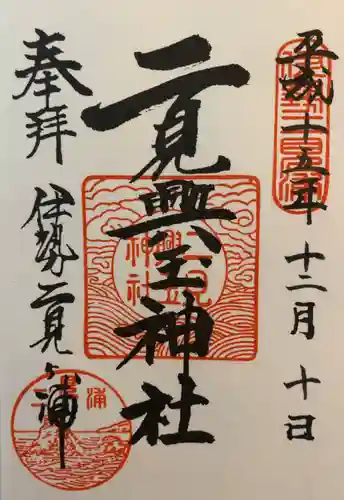 平成二十五年十二月十日
二見興玉神社
奉拝
伊勢二見ヶ浦
二見
興玉
神社
浦